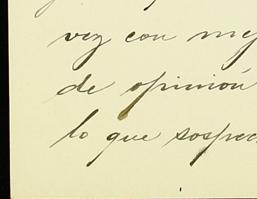 vez con mej
de opinión
lo que sospec